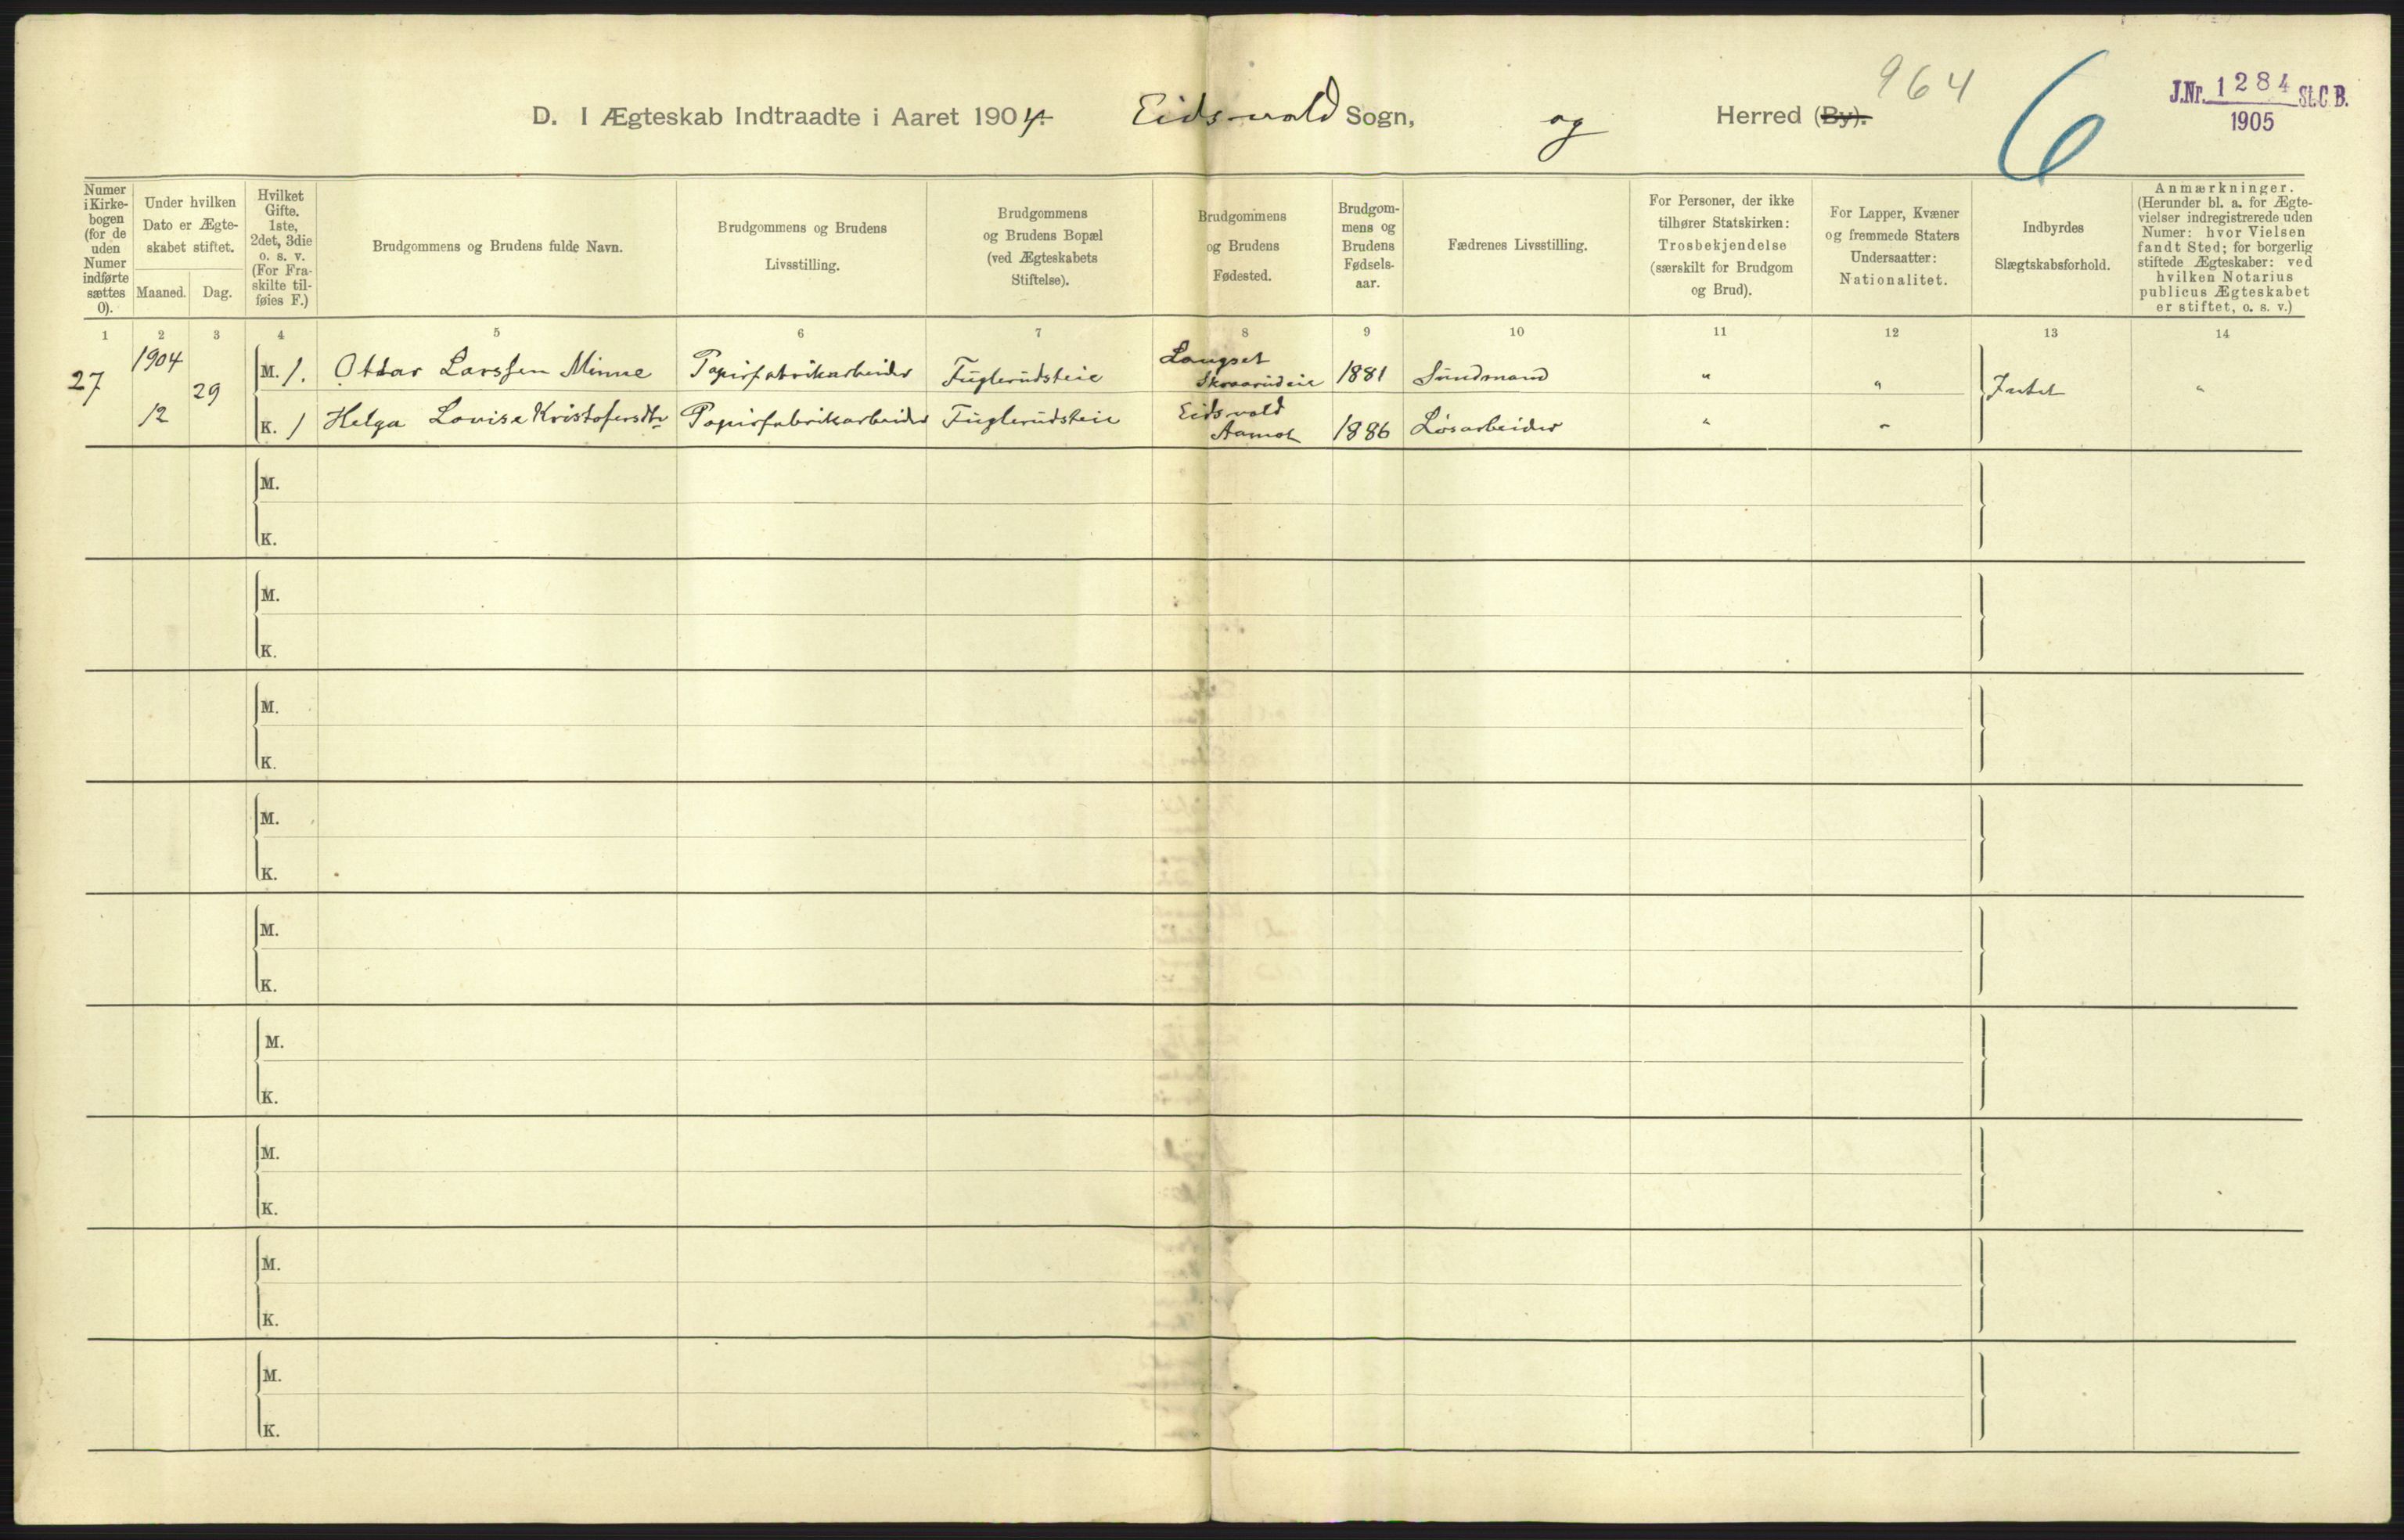 964
6
J.Nr. 1284 St.C.B.
1905
D. I Ægteskab Indtraadte i Aaret 1904. Eidsvold Sogn, og Herred (By).
Numer i Kirke-bogen (for de uden Numer indførte sættes 0).
Under hvilken Dato er Ægte-skabet stiftet.
Maaned. Dag.
Hvilket Gifte. 1ste, 2det, 3die o. s. v. (For Fra-skilte til-føies F.)
Brudgommens og Brudens fulde Navn.
Brudgommens og Brudens Livsstilling.
Brudgommens og Brudens Bopæl (ved Ægteskabets Stiftelse).
Brudgommens og Brudens Fødested.
Brudgom-mens og Brudens Fødsels-aar.
Fædrenes Livsstilling.
For Personer, der ikke tilhører Statskirken: Trosbekjendelse (særskilt for Brudgom og Brud).
For Lapper, Kvæner og fremmede Staters Undersaatter: Nationalitet.
Indbyrdes Slægtskabsforhold.
Anmærkninger. (Herunder bl. a. for Ægte-vielser indregistrerede uden Numer: hvor Vielsen fandt Sted; for borgerlig stiftede Ægteskaber: ved hvilken Notarius publicus Ægteskabet er stiftet, o. s. v.)
1 2 3 4 5 6 7 8 9 10 11 12 13 14
27 1904 12 29
M. 1. Ottar Larssen Minne Papirfabrikarbeider Fuglerudsteie Langset Skraarudeie 1881 Sundmand " " Intet "
K. 1 Helga Lovise Kristofersdtr Papirfabrikarbeider Fuglerudsteie Eidsvold Aamot 1886 Løsarbeider " "
M.
K.
M.
K.
M.
K.
M.
K.
M.
K.
M.
K.
M.
K.
M.
K.
M.
K.